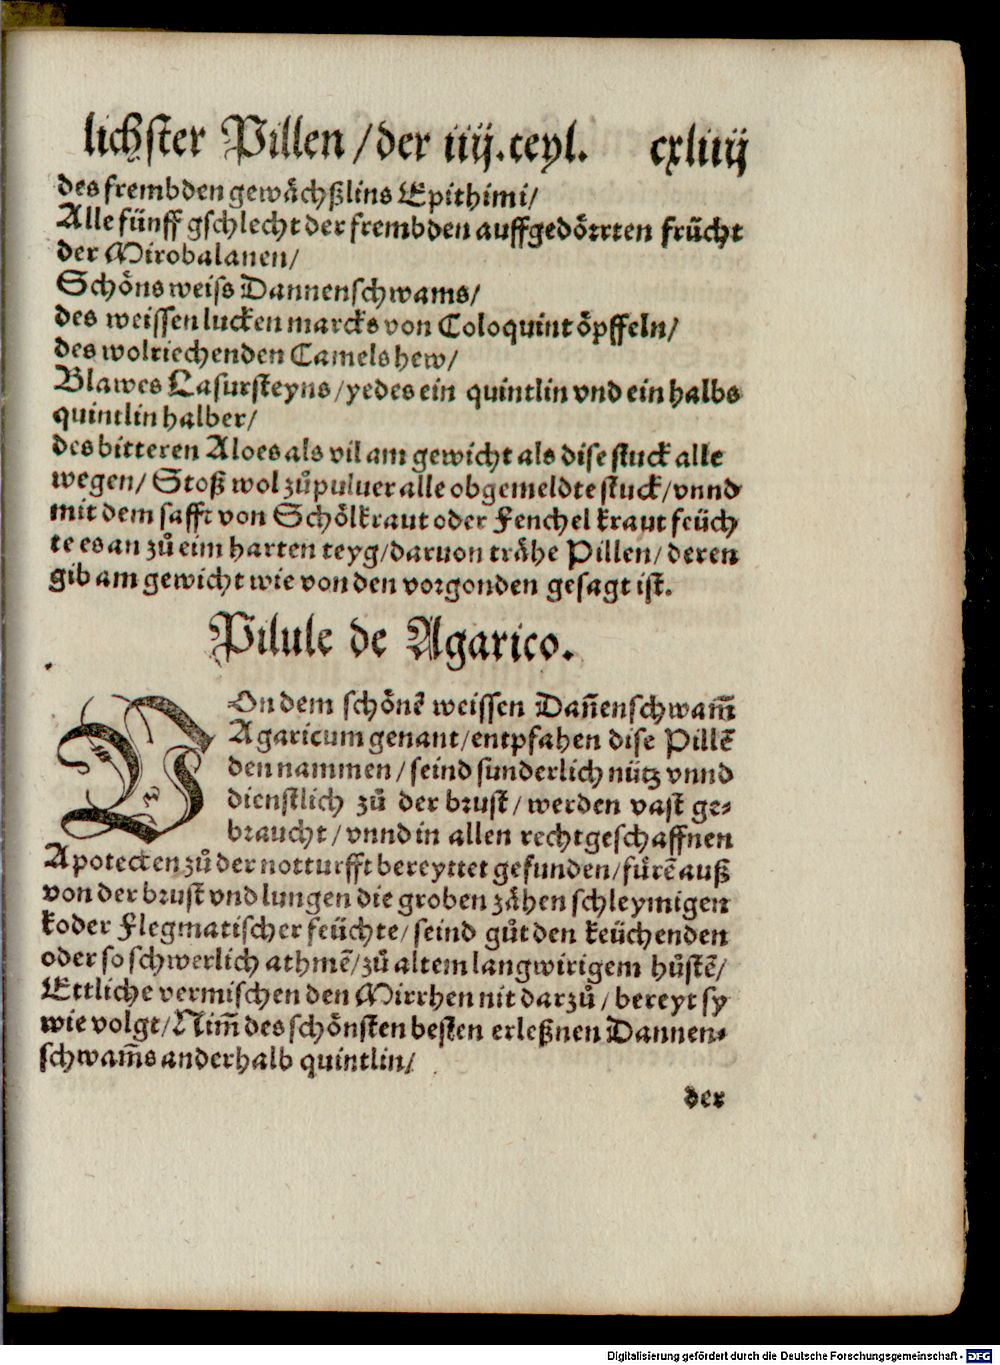 lichster Pillen /der iiij.teyl. cxliiij
des frembden gewåchßlins Epithimi/
Alle fünff gschlecht der frembden auffgedörrten frücht
der Mirobalanen/
Schöns weiss Dannenschwams/
des weissen lucken marcks von Coloquint öpffeln/
des wolriechenden Camels hew/
Blawes Lasursteyns /yedes ein quintlin vnd ein halbs
quintlin halber/
des bitteren Aloes als vil am gewicht als dise stuck alle
wegen/ Stoß wol zů puluer alle obgemeldte stuck/ vnnd
mit dem safft von Schölkraut oder Fenchel kraut feüch
te es an zů eim harten teyg/ daruon trähe Pillen/ deren
gib am gewicht wie von den vorgonden gesagt ist.
Pilule de Agarico.
VOn dem schönē weissen Dañenschwam̃
Agaricum genant/entpfahen dise Pillē
den nammen /seind sunderlich nütz vnnd
dienstlich zů der brust/ werden vast ge-
braucht/ vnnd in allen rechtgeschaffnen
Apotecken zů der notturfft bereyttet gefunden/fürē auß
von der brust vnd lungen die groben zähen schleymigen
koder Flegmatischer feüchte/ seind gůt den keüchenden
oder so schwerlich athmē/zů altem langwirigem hůstē/
Ettliche vermischen den Mirrhen nit darzů/ bereyt sy
wie volgt/Nim̃ des schönsten besten erleßnen Dannen-
schwam̃s anderhalb quintlin/
der
Digitalisierung gefördert durch die Deutsche Forschungsgemeinschaft - DFG